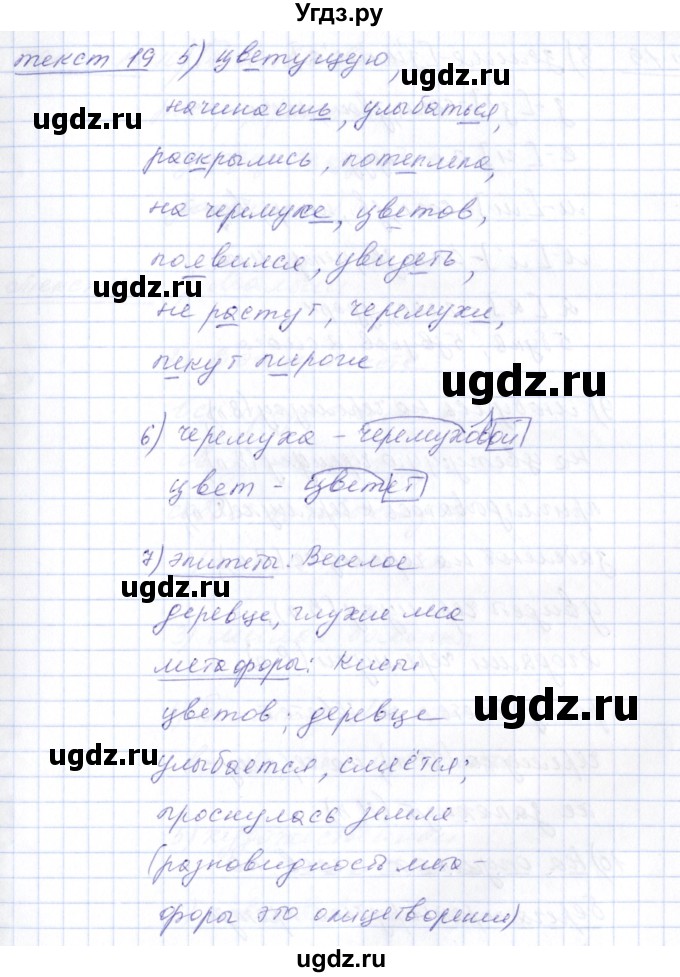 Угдз.ру
текст 19 5) цветущую,
ugdz.ru
начинаешь, улыбаться,
ugdz.ru
раскрылись, потеплела,
ugdz.ru
на черемухе, цветов,
появился, увидеть,
ugdz.ru
ugdz.ru
не растут, черемухи,
пекут пироги
ugdz.ru
6) черемуха - черемуховой
цвет - цветет
7) эпитеты: Веселое
ugdz.ru
деревце, глухие леса
метафоры: Кисти
цветов; деревце
ugdz.ru
ugdz.ru
улыбается, смеётся;
проснулась земля
(разновидность мета-
форы это олицетворение)
ugdz.ru